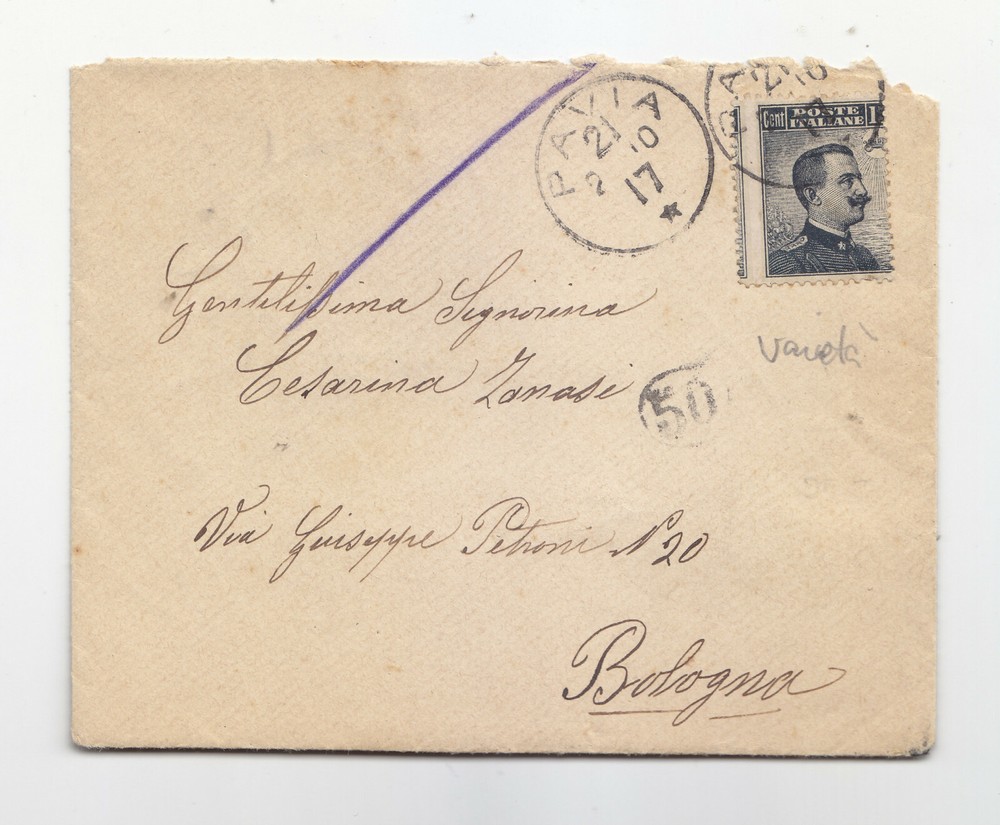 PAVIA
21
2 10
17
PA
21 10
17
Cent POSTE ITALIANE 1
Gentilissima Signorina
Cesarina Zanasi
varietà
50
Via Giuseppe Petroni N 20
Bologna